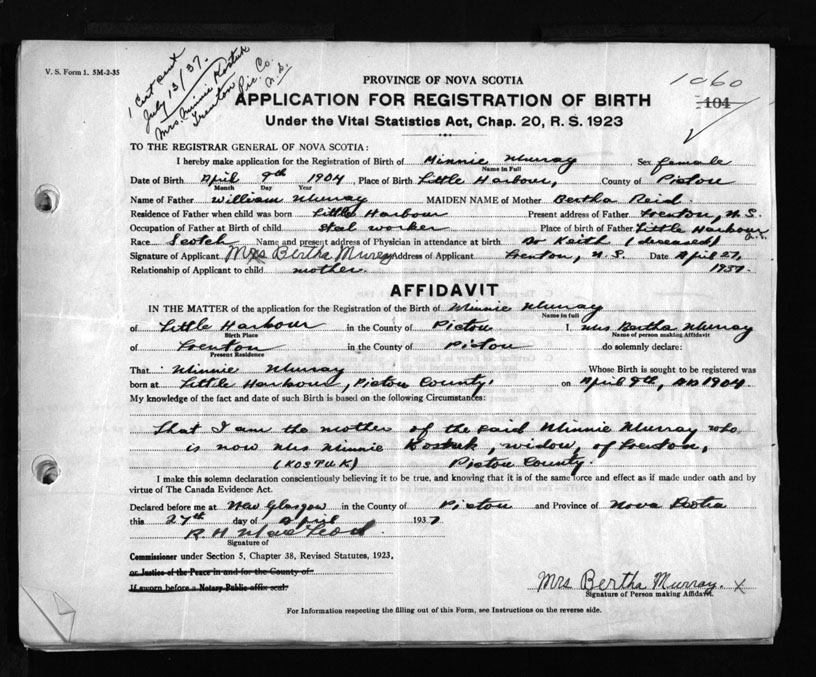 V. S. Form 1. 5M-2-35
1 Cert sent
July 13/37.
Mrs. Minnie Kostuk
Trenton Pic. Co.
N.S.
1060
104
PROVINCE OF NOVA SCOTIA
APPLICATION FOR REGISTRATION OF BIRTH
Under the Vital Statistics Act, Chap. 20, R. S. 1923
TO THE REGISTRAR GENERAL OF NOVA SCOTIA:
I hereby make application for the Registration of Birth of Minnie Murray Sex female
Name in Full
Date of Birth April 9th 1904 Place of Birth Little Harbour, County of Pictou
Month Day Year
Name of Father William Murray MAIDEN NAME of Mother Bertha Reid.
Residence of Father when child was born Little Harbour Present address of Father Trenton, N.S.
Occupation of Father at Birth of child Steel worker Place of birth of Father Little Harbour
Race Scotch Name and present address of Physician in attendance at birth Dr Keith (deceased)
Signature of Applicant Mrs Bertha Murray Address of Applicant Trenton, N.S. Date April 27,
Relationship of Applicant to child mother. 1937.
AFFIDAVIT
IN THE MATTER of the application for the Registration of the Birth of Minnie Murray
Name in full
of Little Harbour in the County of Pictou I, Mrs Bertha Murray
Birth Place Name of person making Affidavit
of Trenton in the County of Pictou do solemnly declare:
Present Residence
That Minnie Murray Whose Birth is sought to be registered was
born at Little Harbour, Pictou County, on April 9th, AD 1904.
My knowledge of the fact and date of such Birth is based on the following Circumstances:
That I am the mother of the said Minnie Murray who
is now Mrs Minnie Kostuk, widow, of Trenton,
(KOSTUK) Pictou County.
I make this solemn declaration conscientiously believing it to be true, and knowing that it is of the same force and effect as if made under oath and by
virtue of The Canada Evidence Act.
Declared before me at New Glasgow in the County of Pictou and Province of Nova Scotia
this 27th day of April 1937
R H MacLeod
Signature of
Commissioner under Section 5, Chapter 38, Revised Statutes, 1923,
or Justice of the Peace in and for the County of
If sworn before a Notary Public affix seal.
Mrs Bertha Murray. x
Signature of Person making Affidavit.
For Information respecting the filling out of this Form, see Instructions on the reverse side.